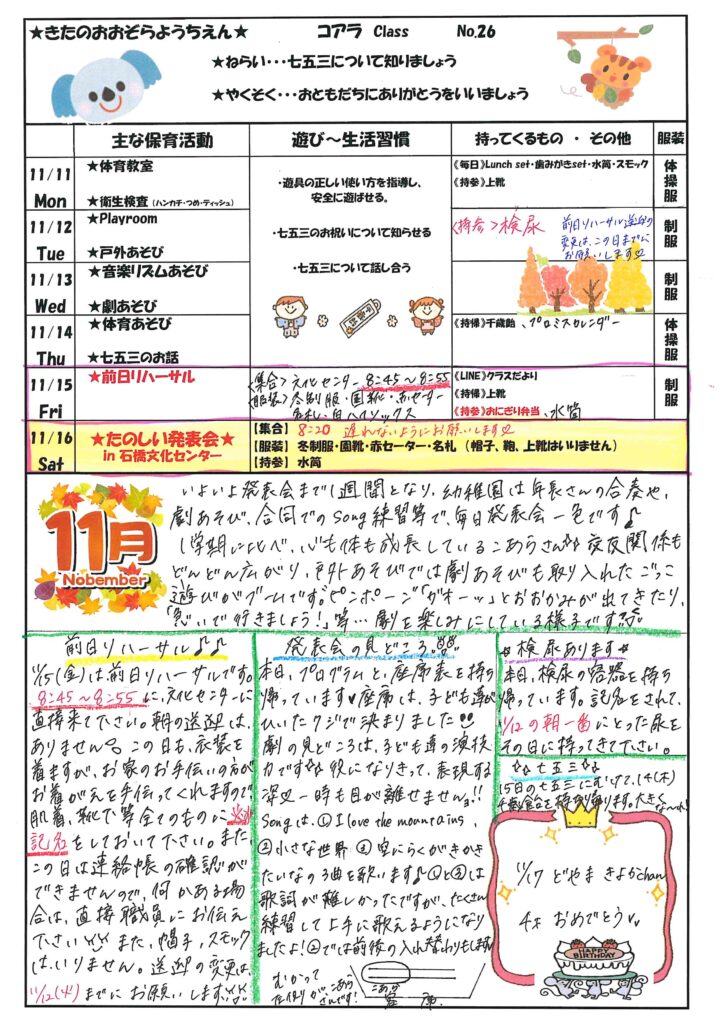 ★きたのおおぞらようちえん★ コアラ Class No.26
★ねらい・・・七五三について知りましょう
★やくそく・・・おともだちにありがとうをいいましょう
主な保育活動 遊び～生活習慣 持ってくるもの ・ その他 服装
11/11 Mon
★体育教室
★衛生検査 (ハンカチ・つめ・ティッシュ)
《毎日》Lunch set・歯みがきset・水筒・スモック
《持参》上靴
体操服
・遊具の正しい使い方を指導し、
安全に遊ばせる。
・七五三のお祝いについて知らせる
・七五三について話し合う
11/12 Tue
★Playroom
★戸外あそび
〈持参〉検尿
前日リハーサル送迎の
変更は、この日までに
お願いします♡
制服
11/13 Wed
★音楽リズムあそび
★劇あそび
制服
11/14 Thu
★体育あそび
★七五三のお話
《持帰》千歳飴、プロミスカレンダー
体操服
11/15 Fri
★前日リハーサル
〈集合〉文化センター 8:45～8:55
〈服装〉冬制服・園靴・赤セーター
名札・白ハイソックス
《LINE》クラスだより
《持帰》上靴
《持参》おにぎり弁当、水筒
制服
11/16 Sat
★たのしい発表会★
in 石橋文化センター
【集合】8:20 遅れないようにお願いします♡
【服装】冬制服・園靴・赤セーター・名札 (帽子、鞄、上靴はいりません)
【持参】水筒
11月
Nobember
いよいよ発表会まで1週間となり、幼稚園は年長さんの合奏や、
劇あそび、合同でのSong練習等で、毎日発表会一色です♪
1学期に比べ、心も体も成長しているこあらさん☆交友関係も
どんどん広がり、戸外あそびでは劇あそびも取り入れたごっこ
遊びがブームです。“ピンポーン”“ガオーッ”とおおかみが出てきたり、
「急いで行きましょう!」等…劇を楽しみにしている様子です
前日リハーサル♪♪
11/15(金)は前日リハーサルです。
8:45～8:55に、文化センターに
直接来て下さい。朝の送迎は、
ありません。この日も、衣装を
着ますが、お家のお手伝いの方が
お着がえを手伝ってくれますので
肌着、靴下等全てのものに必ず
記名をしておいて下さい。また、
この日は連絡帳の確認が
できませんので、何かある場
合は、直接職員にお伝え
下さい また、帽子、スモック
はいりません。送迎の変更は、
11/12(火)までにお願いします
発表会の見どころ
本日、プログラムと、座席表を持ち
帰っています♥座席は、子ども達が
ひいたクジで決まりました!!
劇の見どころは、子ども達の演技
力です☆役になりきって、表現する
姿に一時も目が離せません。!!
Songは、①I love the mountains、
②小さな世界 ③空にらくがきかき
たいなの3曲を歌います♪①と③は
歌詞が難しかったですが、たくさん
練習して上手に歌えるようになり
ましたよ!②では前後の入れ替わりもします
むかって
左側がこあら
さんです!
こあら
客席
★検尿あります★
本日、検尿の容器を持ち
帰っています。記名をされて、
11/12の朝一番にとった尿を
その日に持ってきて下さい。
☆七五三☆
15日の七五三にむけて、14(木)
千歳飴を持ち帰ります。大きくなーれ!
11/17 どやま きよかchan
4才 おめでとう♡
HAPPY
BIRTHDAY